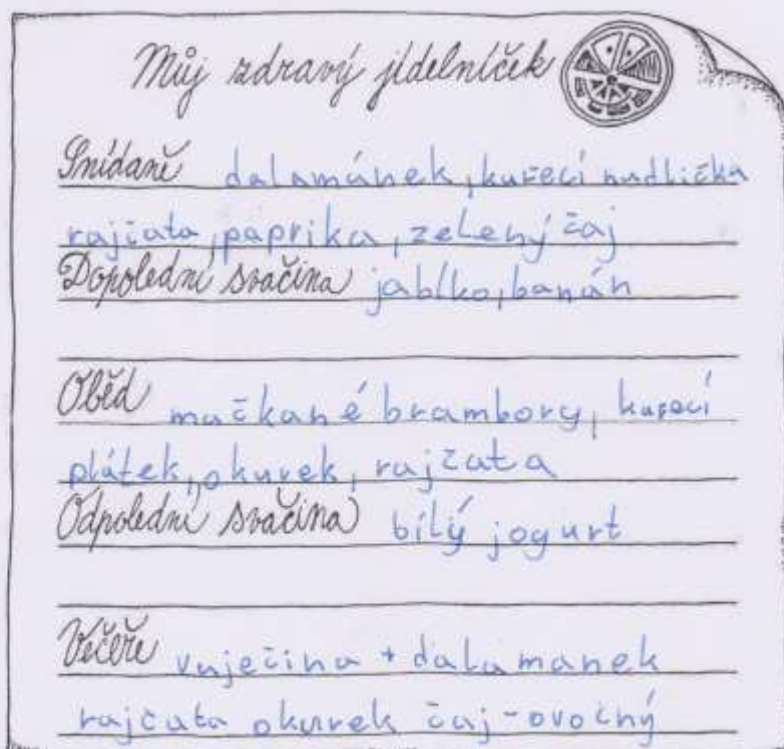 Můj zdravý jídelníček
Snídaně dalamánek, kuřecí nudlička
rajčata, paprika, zelený čaj
Dopolední svačina jablko, banán
Oběd mačkané brambory, kuřecí
plátek, okurek, rajčata
Odpolední svačina bílý jogurt
Večeře vaječina + dalamanek
rajčata okurek čaj-ovocný